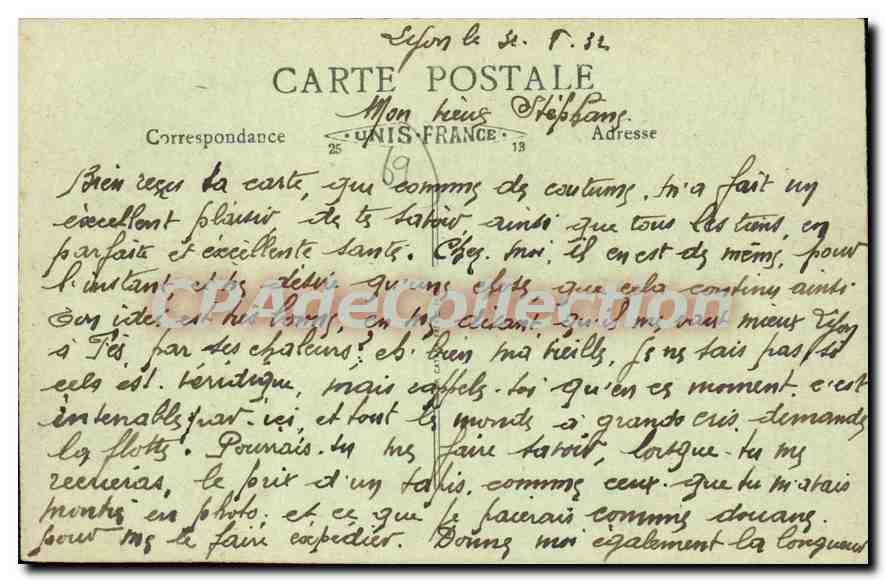 Lyon le 31. 8. 32
CARTE POSTALE
Mon vieux Stéphane.
Correspondance
UNIS-FRANCE
Adresse
25
13
69
Bien reçu ta carte, qui comme de coutume, m'a fait un
excellent plaisir, de te savoir, ainsi que tous les tiens, en
parfaite et éxcèllente santé. Chez moi, il en est de même, pour
l'instant et ne désire qu'une chose que cela continue ainsi
Ton idée est très bonne, en me disant qu'il me vaut mieux Lyon
à Fès, par ses chaleurs? eh bien ma vieille, je ne sais pas si
cela est véridique, mais rappelle-toi qu'en ce moment, c'est
intenable par-ici, et tout le monde à grands cris, demande
la flotte. Pourrais-tu me faire savoir, lorsque tu me
recevras, le prix d'un tapis, comme ceux que tu m'avais
montré en photo, et ce que je paierais comme douane.
pour me le faire éxpédier. Donne moi également la longueur
CPAdeCollection